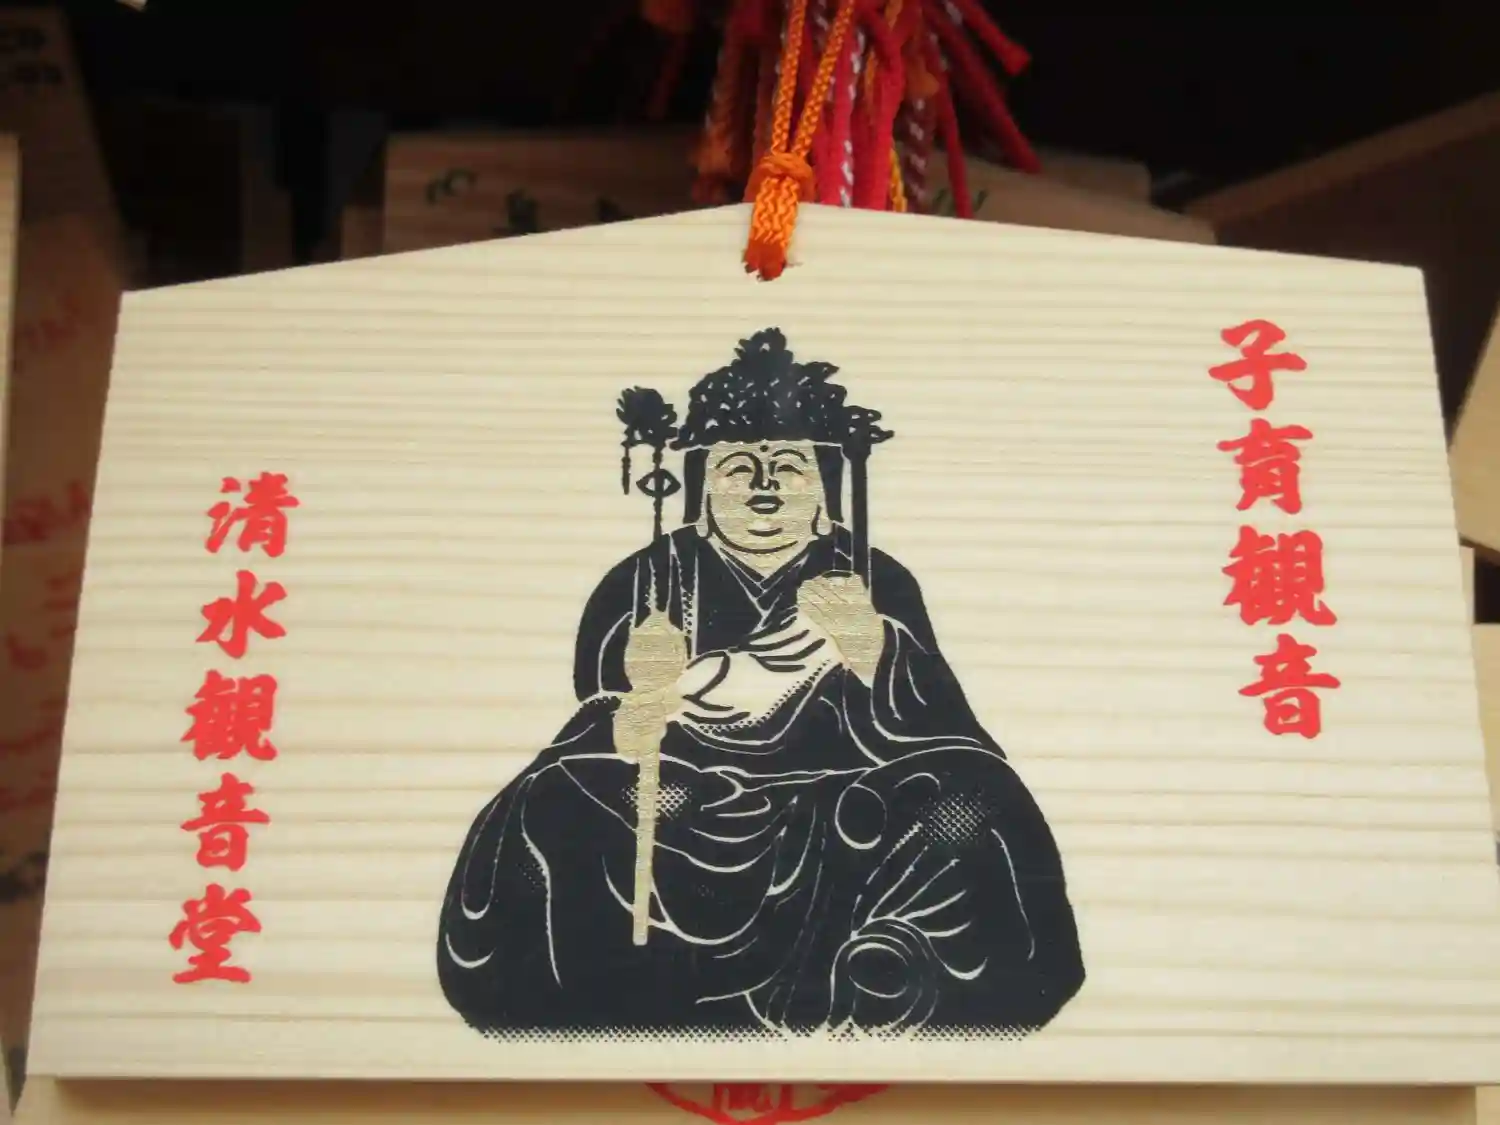 子育観音
清水観音堂